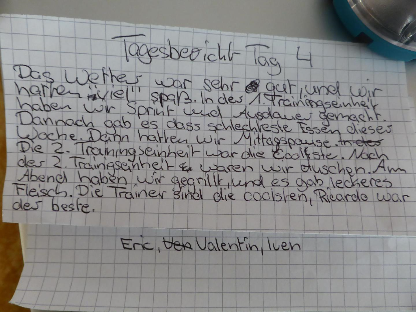 Tagesbericht Tag 4
Das Wetter war sehr gut, und wir
hatten "viel" spaß. In der 1 Trainingseinheit
haben wir Sprint und Ausdauer gemacht.
Dannach gab es dass schlechteste Essen dieser
Woche. Dann hatten wir Mittagspause. in der
Die 2. Trainingseinheit war die Coolste. Nach
der 2. Traingseinheit waren wir duschen. Am
Abend haben wir gegrillt, und es gab leckeres
Fleisch. Die Trainer sind die coolsten, Ricardo war
der beste.
Eric, Valentin, Iven